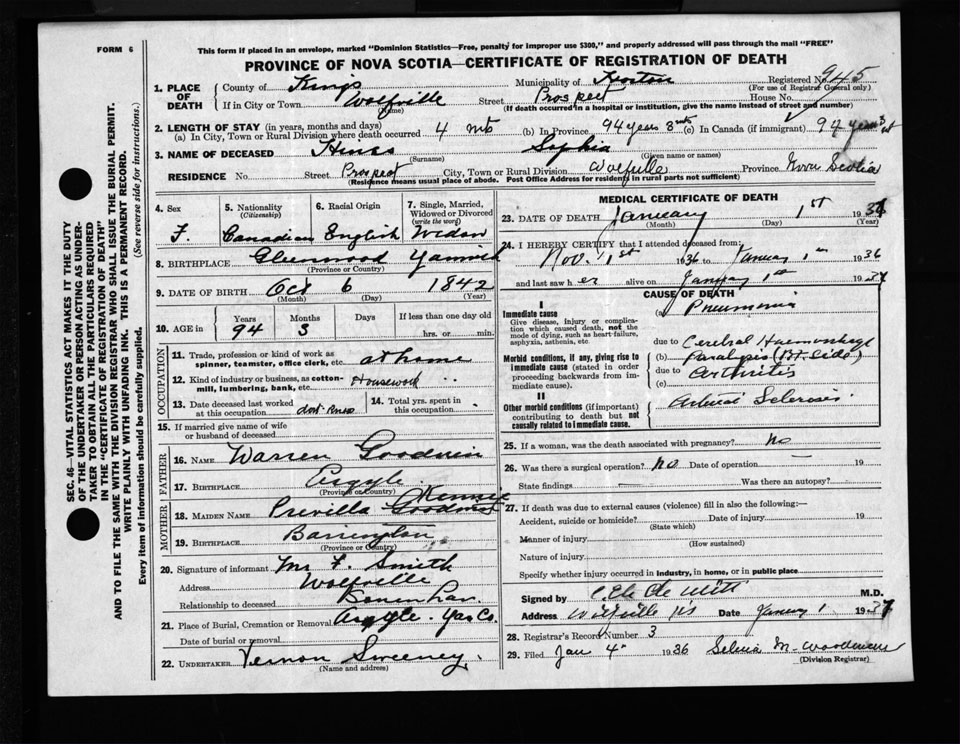 FORM 6
This form if placed in an envelope, marked "Dominion Statistics—Free, penalty for improper use $300," and properly addressed will pass through the mail "FREE"
PROVINCE OF NOVA SCOTIA—CERTIFICATE OF REGISTRATION OF DEATH
SEC. 46—VITAL STATISTICS ACT MAKES IT THE DUTY
OF THE UNDERTAKER OR PERSON ACTING AS UNDER-
TAKER TO OBTAIN ALL THE PARTICULARS REQUIRED
IN THE "CERTIFICATE OF REGISTRATION OF DEATH"
AND TO FILE THE SAME WITH THE DIVISION REGISTRAR WHO SHALL ISSUE THE BURIAL PERMIT.
WRITE PLAINLY WITH UNFADING INK. THIS IS A PERMANENT RECORD.
(See reverse side for instructions.)
Every item of information should be carefully supplied.
1. PLACE OF DEATH
County of Kings Municipality of Registered No. 945
(For use of Registrar General only)
If in City or Town Wolfville Street Prospect House No.
(Name) (If death occurred in a hospital or institution, give the name instead of street and number)
2. LENGTH OF STAY (in years, months and days)
(a) In City, Town or Rural Division where death occurred 4 mts (b) In Province 94 years 3 mts (c) In Canada (if immigrant)
3. NAME OF DECEASED Hines Sophia
(Surname) (Given name or names)
RESIDENCE No. Street Prospect City, Town or Rural Division Wolfville Province Nova Scotia
(Residence means usual place of abode. Post Office Address for residents in rural parts not sufficient)
4. Sex F.
5. Nationality (Citizenship) Canadian
6. Racial Origin English
7. Single, Married, Widowed or Divorced (write the word) Widow
8. BIRTHPLACE Glenwood Yarmouth
(Province or Country)
9. DATE OF BIRTH Oct 6 1842
(Month) (Day) (Year)
10. AGE in Years 94 Months 3 Days If less than one day old hrs. or min.
OCCUPATION
11. Trade, profession or kind of work as spinner, teamster, office clerk, etc. at home
12. Kind of industry or business, as cotton-mill, lumbering, bank, etc. Housework
13. Date deceased last worked at this occupation dont know
14. Total yrs. spent in this occupation
15. If married give name of wife or husband of deceased
FATHER
16. NAME Warren Goodwin
17. BIRTHPLACE Argyle
(Province or Country)
MOTHER
18. MAIDEN NAME Privilla Goodwin
19. BIRTHPLACE Barrington
(Province or Country)
20. Signature of informant Mr F. Smith
Address Wolfville
Relationship to deceased
21. Place of Burial, Cremation or Removal Argyle. Yar Co.
Date of burial or removal
22. UNDERTAKER Vernon Sweeney.
(Name and address)
MEDICAL CERTIFICATE OF DEATH
23. DATE OF DEATH January 1st 1937
(Month) (Day) (Year)
24. I HEREBY CERTIFY that I attended deceased from:
Nov. 1st 1936 to January 1 1936
and last saw her alive on January 1st 1937
CAUSE OF DEATH
I
Immediate cause
Give disease, injury or complication which caused death, not the mode of dying, such as heart-failure, asphyxia, asthenia, etc.
(a) Pneumonia
due to Cerebral Haemorrhage
Morbid conditions, if any, giving rise to immediate cause (stated in order proceeding backwards from immediate cause).
(b) Paralysis (Rt. Side)
due to Arthritis
(c)
II
Other morbid conditions (if important) contributing to death but not causally related to immediate cause.
Arterial Sclerosis.
25. If a woman, was the death associated with pregnancy? No
26. Was there a surgical operation? No Date of operation 19
State findings Was there an autopsy?
27. If death was due to external causes (violence) fill in also the following:—
Accident, suicide or homicide? Date of injury 19
(State which)
Manner of injury
(How sustained)
Nature of injury
Specify whether injury occurred in industry, in home, or in public place
Signed by De Witt M.D.
Address Wolfville NS Date January 1 1937
28. Registrar's Record Number 3
29. Filed Jan 4 1936 Selena M.
(Division Registrar)